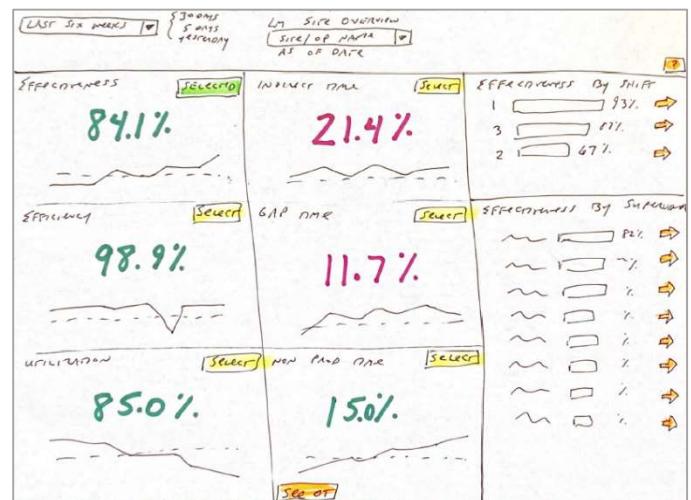 LAST SIX WEEKS
30 DAYS
5 DAYS
YESTERDAY
LM SITE OVERVIEW
SITE/OP NAME
AS OF DATE
?
EFFECTIVENESS
SELECTED
84.1%
INDIRECT TIME
SELECT
21.4%
EFFECTIVENESS BY SHIFT
1 93%
3 87%
2 67%
EFFICIENCY
SELECT
98.9%
GAP TIME
SELECT
11.7%
EFFECTIVENESS BY SUPERVISOR
82%
%
%
%
%
%
%
%
UTILIZATION
SELECT
85.0%
NON PROD TIME
SELECT
15.0%
SEE OT